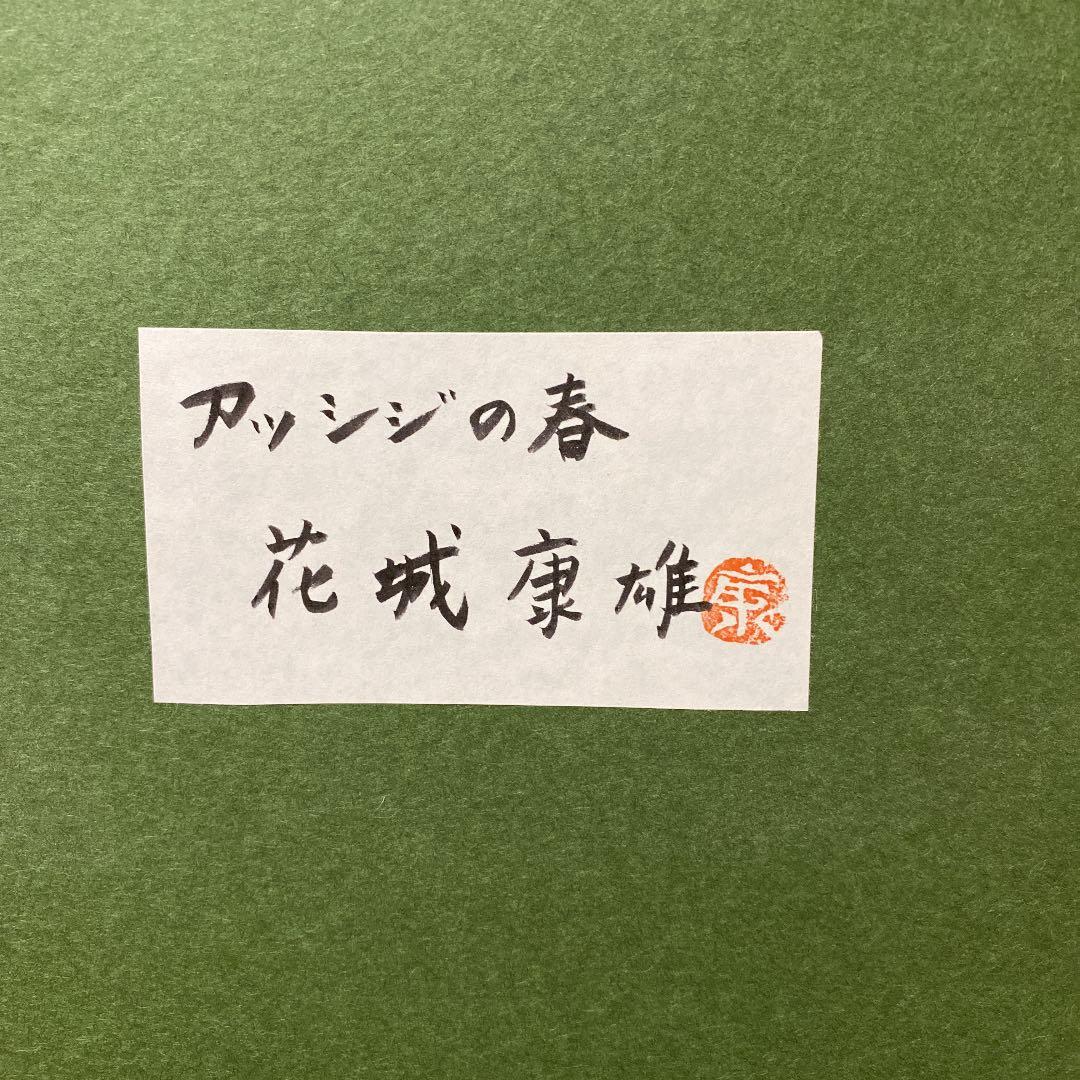 アッシジの春
花城康雄
康